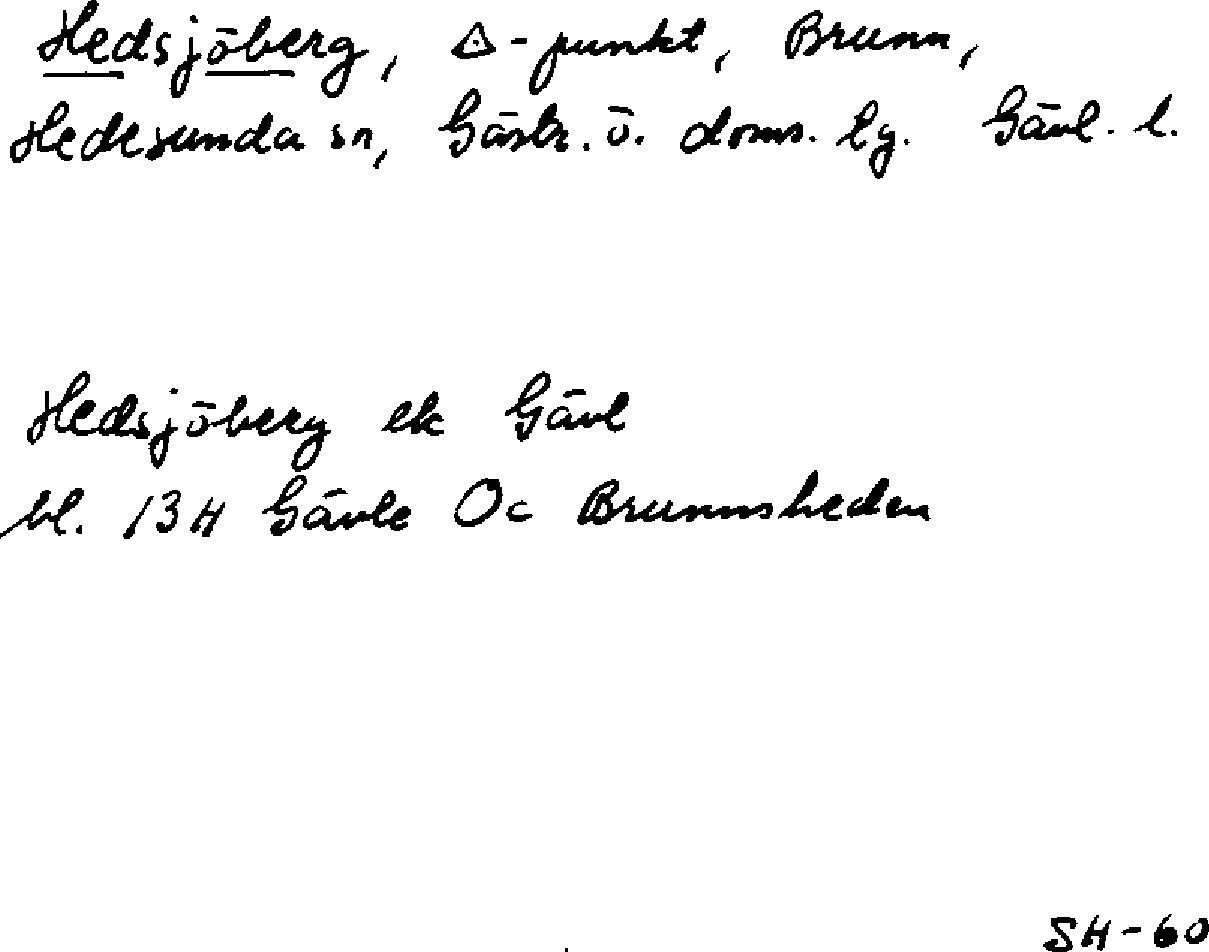 Hedsjöberg, △-punkt, Brunn,
Hedesunda sn, Gästr. ö. doms. lg. Gävl. l.
Hedsjöberg ek Gävl
bl. 13H Gävle Oc Brunnsheden
SH-60